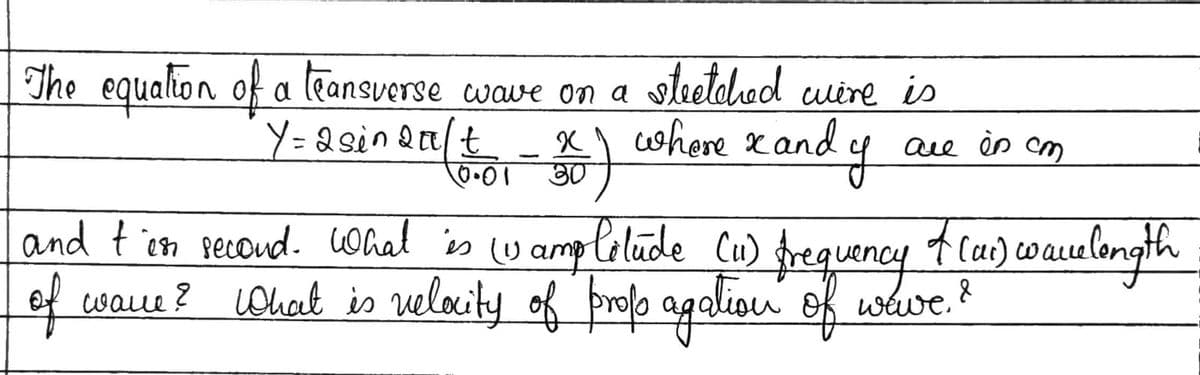 The equation of a transverse wave on a stretched wire is
Y = 2 sin 2π (t/0.01 - x/30) where x and y are in cm
and t in second. What is (i) amplitude (ii) frequency & (iii) wavelength
of wave? What is velocity of propagation of wave.?